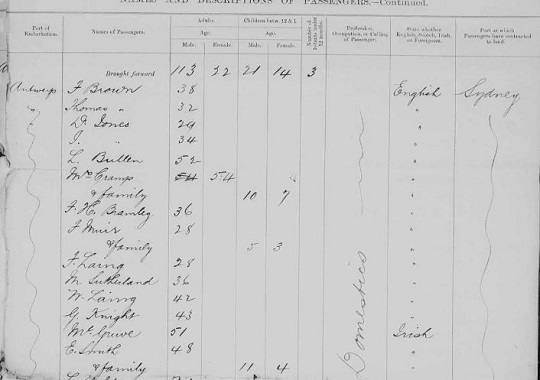 NAMES AND DESCRIPTIONS OF PASSENGERS.—Continued.
Port of Embarkation. Names of Passengers. Adults. Children between 12 & 1. Number of Infants under 12 months. Profession, Occupation, or Calling of Passenger. State whether English, Scotch, Irish, or Foreigners. Port at which Passengers have contracted to land.
Age. Age.
Male. Female. Male. Female.
Brought forward 113 22 21 14 3
Antwerp F Brown 38 English Sydney
" Thomas " 32 "
Dd Jones 29 "
J. " 34 "
L. Bullen 52 "
Mrs Cramp 54 "
& family 10 7 "
F. H. Bramley 36 "
J Muir 28 "
& family 5 3 "
F. Laing 28 "
M Sutherland 36 "
W. Laing 42 "
G. Knight 43 "
51 Irish
E. Smith 48 "
& family 11 4 "
Domestics